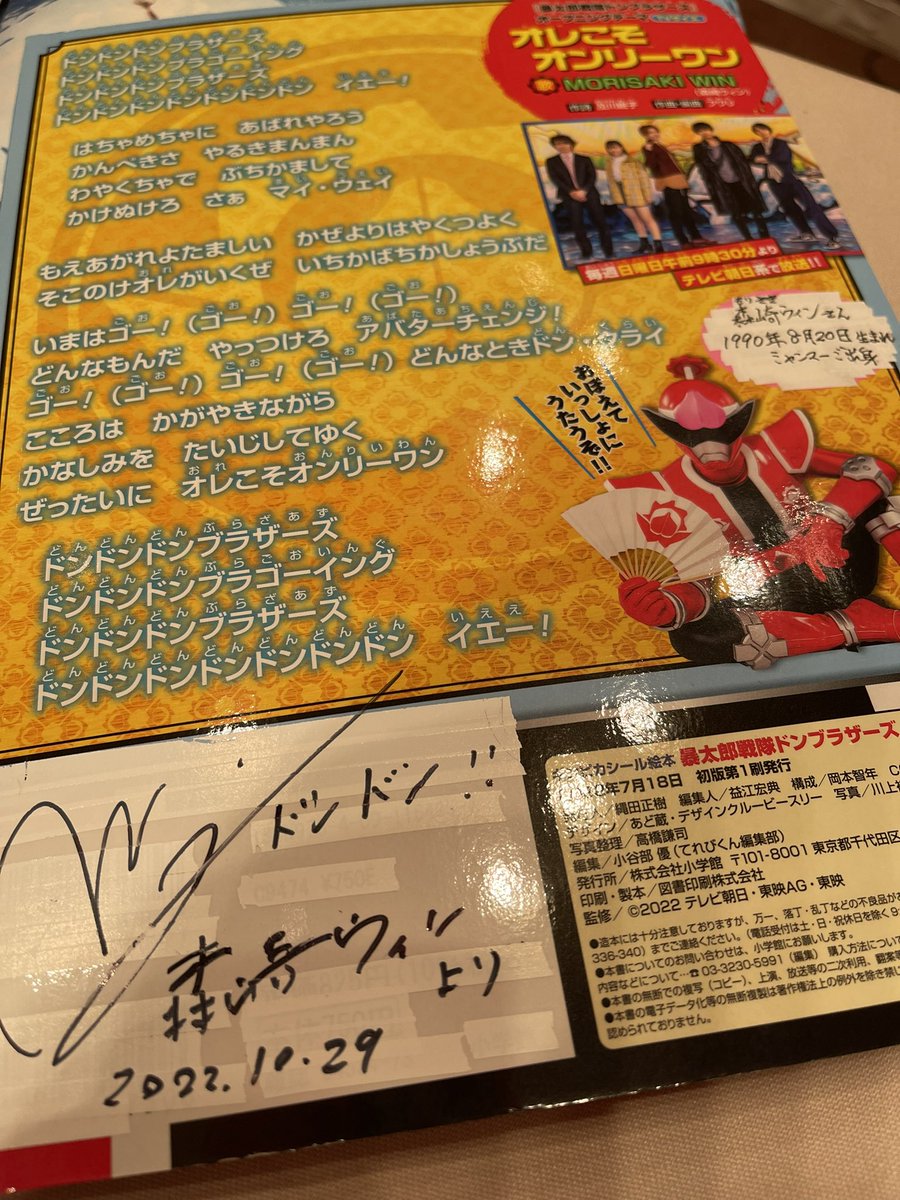 ドンドンドンブラザーズ
ドンドンドンブラゴーイング
ドンドンドンブラザーズ
ドンドンドンドンドンドンドン　イエー！
はちゃめちゃに　あばれやろう
かんぺきさ　やるきまんまん
わやくちゃで　ぶちかまして
かけぬけろ　さぁ　マイ・ウェイ
もえあがれよたましい　かぜよりはやくつよく
そこのけオレがいくぜ　いちかばちかしょうぶだ
いまはゴー！（ゴー！）ゴー！（ゴー！）
どんなもんだ　やっつけろ　アバターチェンジ！
ゴー！（ゴー！）ゴー！（ゴー！）どんなときドン・クライ
こころは　かがやきながら
かなしみを　たいじしてゆく
ぜったいに　オレこそオンリーワン
ドンドンドンブラザーズ
ドンドンドンブラゴーイング
ドンドンドンブラザーズ
ドンドンドンドンドンドンドン　イエー！
『暴太郎戦隊ドンブラザーズ』
オープニングテーマ
オレこそ
オンリーワン
歌 MORISAKI WIN
（森崎ウィン）
毎週日曜日午前9時30分より
テレビ朝日系で放送!!
森崎ウィンさん
1990年8月20日 生まれ
ミャンマー 出身
おぼえて
いっしょに
うたうぞ!!
ドンドン!!
森崎ウィン
より
2022.10.29
ピカシール絵本 暴太郎戦隊ドンブラザーズ
年7月18日　初版第1刷発行
縄田正樹　編集人／益江宏典　構成／岡本智年
デザイン／あど蔵・デザインクルービースリー　写真／川上
写真整理／高橋謙司
編集／小谷部 優（てれびくん編集部）
発行所／株式会社小学館 〒101-8001 東京都千代田区
印刷・製本／図書印刷株式会社
監修／©2022 テレビ朝日・東映AG・東映
●造本には十分注意しておりますが、万一、落丁・乱丁などの不良品が
336-340）までご連絡ください。（電話受付は土・日・祝休日を除く
●本書についてのお問い合わせは、小学館にお願いします。購入方法につい
内容などについて…☎03-3230-5991（編集）
●本書の無断での複写（コピー）、上演、放送等の二次利用、翻案等
●本書の電子データ化等の無断複製は著作権法上の例外を除き禁じ
認められておりません。